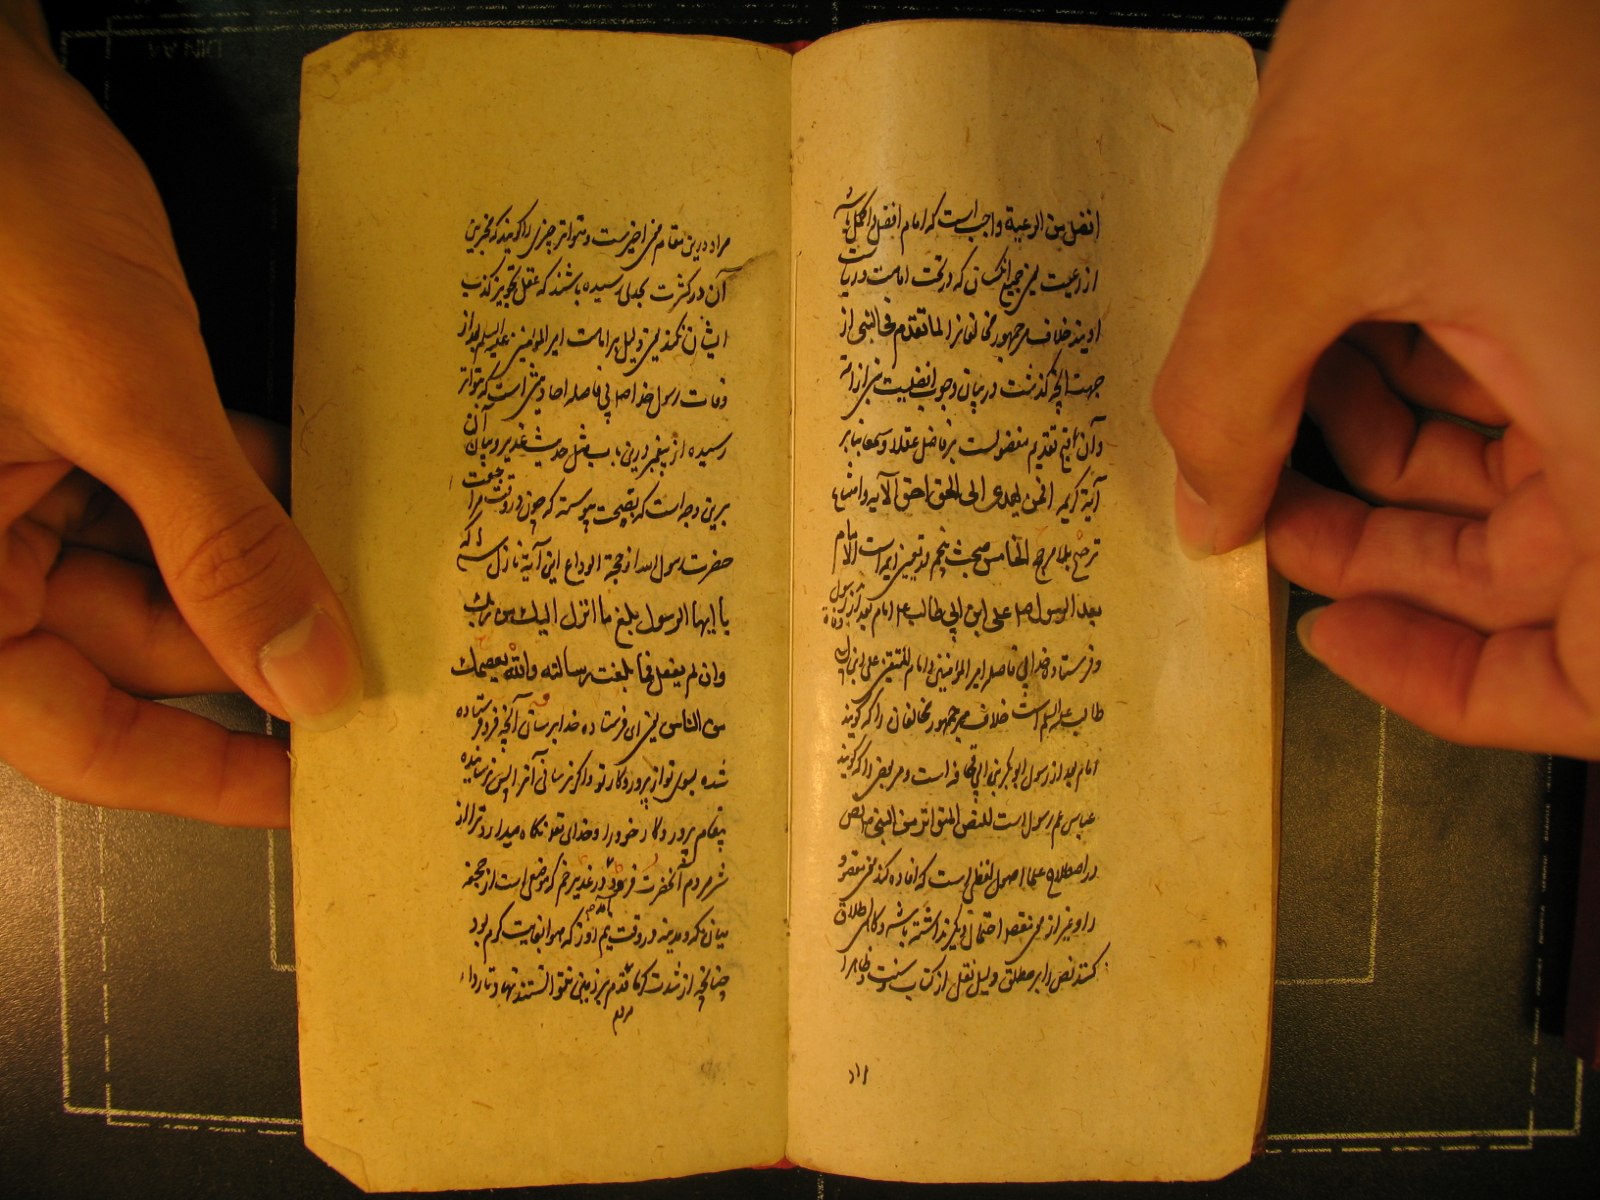 افضل من الرعیة واجبست که امام افضل و اکمل باشد
از رعیت یعنی جمیع انکسانی که در تحت امامت و ریاست
اویند خلاف مر جمهور مخالفانرا لما تقدم فی النبی از
جهت انچه گذشت در بیان وجوب افضلیت نبی از امة
و آن قبح تقدیم مفضولست بر فاضل عقلا و سمعا بنابر
آیة کریمه افمن یهدی الی الحق احق الآیه و امتناع
ترجیح بلا مرجح الخامس مبحث پنجم در تعیین ائمه است الامام
بعد الرسول صلعم علی ابن ابی طالب ع امام بعد از وفاة رسول
و فرستاده خدا بی فاصله امیر المؤمنین و امام المتقین علی ابن ابی
طالب علیه السلم است خلاف مر جمهور مخالفان را که گویند
امام بعد از رسول ابو بکر بن ابی قحافه است و مر بعضی را که گویند
عباس عم رسول است للنص المتواتر من النبی ص نص
در اصطلاح علما اصول لفظی است که افاده کند معنی مقصود
را و غیر از معنی مقصد احتمال دیگر نداشته باشد و کاهی اطلاق
کنند نص را بر مطلق دلیل نقل از کتاب و سنت و ظاهرا
مراد
مراد درین مقام معنی اخیرست و متواتر چیزی را گویند که مخبرین
آن در کثرت بحدی رسیده باشند که عقل تجویز کذب
ایشان نکند یعنی دلیل بر امامت امیر المؤمنین علیه السلم بعد از
وفات رسول خدا صلعم بی فاصله احادیثی است که بتواتر
رسیده از پیغمبر درین باب مثل حدیث غدیر و بیان آن
برین وجه است که بصحت پیوسته که چون در وقت مراجعت
حضرت رسول الله از حجة الوداع این آیة نازل شد که
یا ایها الرسول بلغ ما انزل الیک من ربک
وان لم یفعل فما بلغت رسالته والله یعصمک
من الناس یعنی ای فرستاده خدا برسان آنچه فرو فرستاده
شده بسوی تو از پروردکار تو و اگر نرسانی آنرا پس نرسانیده
پیغام پروردکار خود را و خدای تعالی نکاه میدارد ترا از
شر مردم آنحضرت فرمود در غدیر خم که موضعی است از جحفه
میان مکه و مدینه در وقت نیم روز که هوا بغایت کرم بود
چنانچه از شدت کرما قدم بر زمین نتوانستند نهاد تا رداء
مردم